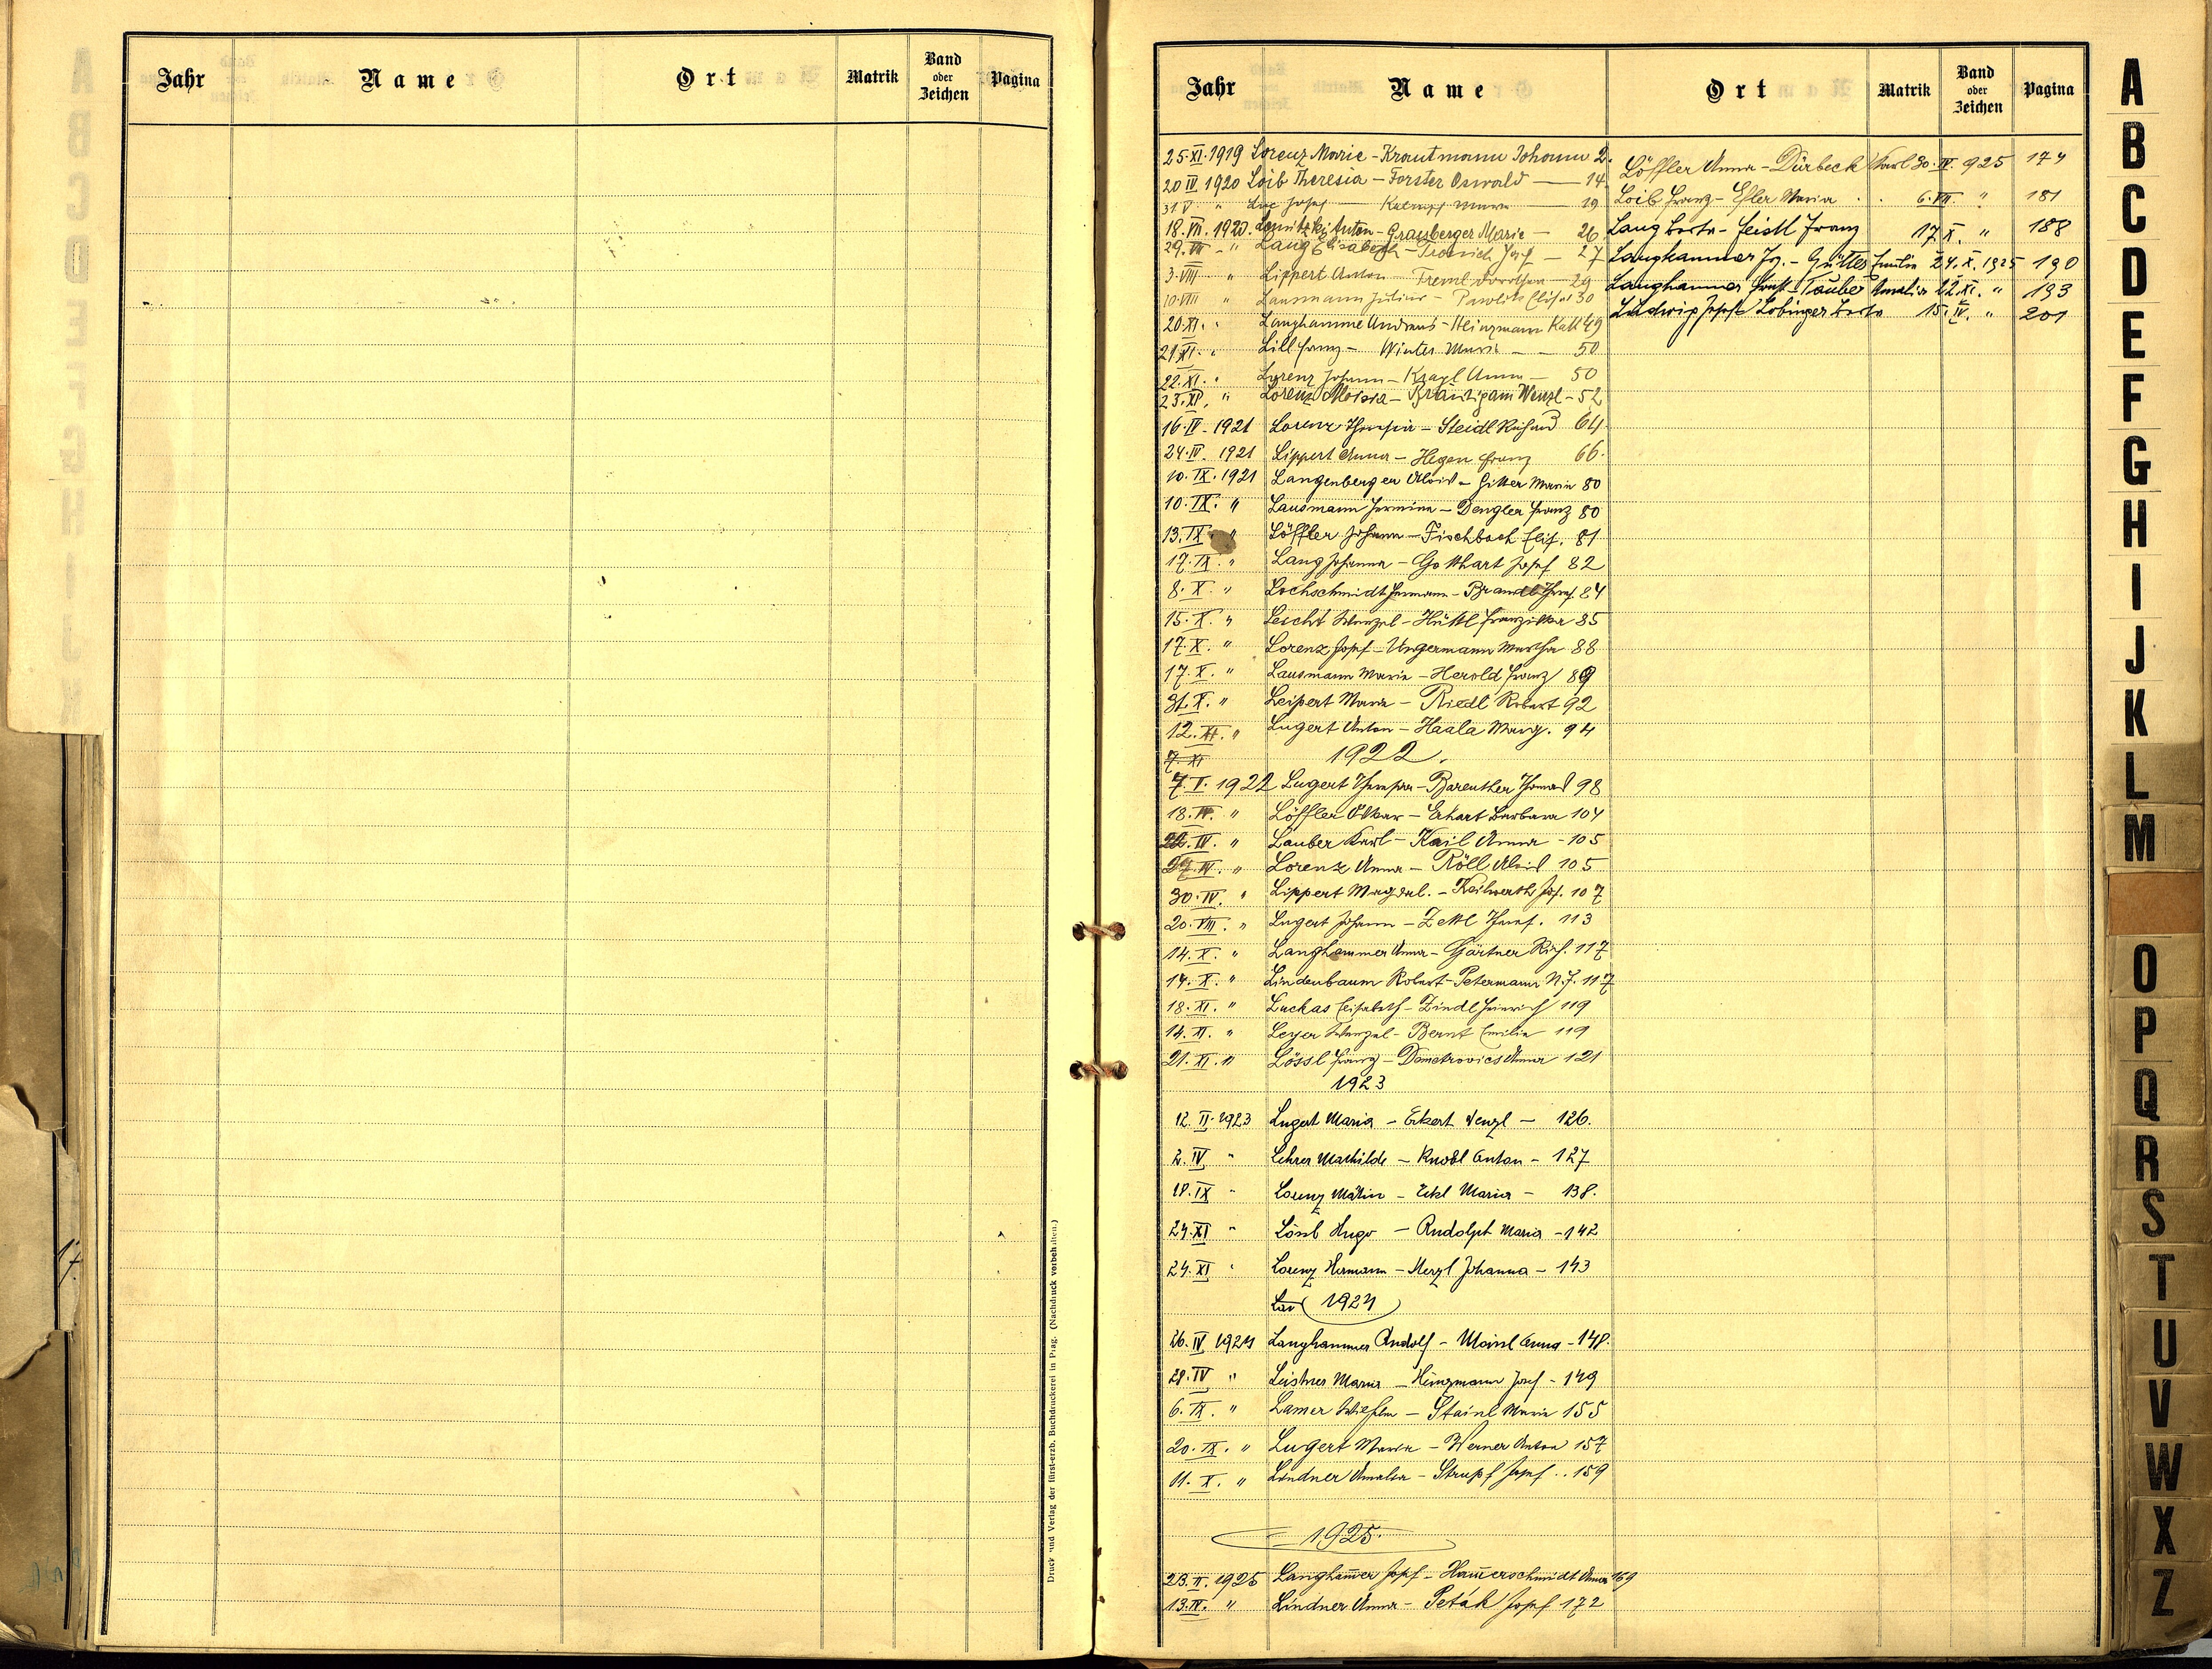 Jahr Name Ort Matrik Band oder Zeichen Pagina
Druck und Verlag der fürst-erzb. Buchdruckerei in Prag. (Nachdruck vorbehalten.)
Jahr Name Ort Matrik Band oder Zeichen Pagina
25.XI.1919 Lorenz Marie - Krautmann Johann 2.
20 IV. 1920 Loib Theresia - Forster Oswald — 14.
31 V. " Josef — 19
18.VII.1920. Anton - Grassberger Marie — 26
29.VII " Lang Elisabeth - Josef — 27
3.VIII " Lippert Anton Treml Dorothea — 29
10.VIII " Lausmann Julius - Elise 30
20.XI. " Langhammer Andreas - Heinzmann Kath 49
21.XI. " Lill Franz - Winter Maria — 50
22.XI. " Lorenz Johann - Kragl Anna — 50
23.XI. " Lorenz Aloisia - Bräutigam Wenzl - 52
16.IV. 1921 Lorenz Theresia - Steidl Richard 64
24.IV. 1921 Lippert Anna - Hegen Franz 66.
10.IX.1921 Langenberger Alois - Gitter Maria 80
10.IX. " Lausmann Hermine - Dengler Franz 80
13.IX. " Löffler Johann - Fischbach Elis. 81
17.IX. " Lang Johanna - Gotthart Josef 82
8.X. " Lochschmidt Hermann - Brandl Theres. 84
15.X. " Leicht Wenzel - Hüttl Franziska 85
17.X. " Lorenz Josef - Ungermann Martha 88
17.X. " Lausmann Maria - Herold Franz 89
31.X. " Leipert Maria - Riedl Robert 92
12.XI. " Lugert Anton - Haala Marg. 94
7.XI 1922.
7.I. 1922 Lugert Theresia - Bareuther Thomas 98
18.IV. " Löffler Otkar - Erhart Barbara 104
22.IV. " Lauber Karl - Kail Anna - 105
27.IV. " Lorenz Anna - Röll Alois 105
30.IV. " Lippert Magdal. - Keilwerth Jos. 107
20.VIII. " Lugert Johann - Zettl Theres. 113
14.X. " Langhammer Anna - Gärtner Rich. 117
14.X. " Lindenbaum Robert - Petermann N.J. 117
18.XI. " Luckas Elisabeth - Zindl Heinrich 119
14.XI. " Leyer Wenzel - Bernt Emilie 119
21.XI. " Lössl Franz - Demetrovics Anna 121
1923
12.II.1923 Lugert Maria - Eckert Wenzl - 126.
2.IV. " Lehrer Mathilde - Knobl Anton - 127
18.IX " Lorenz Martin - Eckl Maria - 138.
24.XI " Lössl Hugo - Rudolph Maria - 142
24.XI " Lorenz Hermann - Merzl Johanna - 143
1924
26.IV.1924 Langhammer Rudolf - Mainl Anna - 148.
28.IV " Leistner Maria - Heinzmann Josef - 149
6.IX. " Lamer Wilhelm - Stainl Maria 155
20.IX. " Lugert Maria - Werner Anton 157
11.X. " Lindner Amalia - Strupf Josef .. 159
1925.
23.II.1925 Langham̅er Josef - Ham̅erschmidt Anna 169
13.IV. " Lindner Anna - Peták Josef 172
Löffler Anna - Dürbeck Karl 30.IV. 925 174
Loib Franz - Esler Maria . . 6.VII. " 181
Lang Berta - Feistl Franz 17.X. " 188
Langhammer Jos. - Güttler Emilie 24.X.1925 190
Langhammer Ernst - Tauber Amalia 22.XI. " 193
Ludwig Josef - Lobinger Berta 15.IV. " 201
A
B
C
D
E
F
G
H
I
J
K
L
M
O
P
Q
R
S
T
U
V
W
X
Z